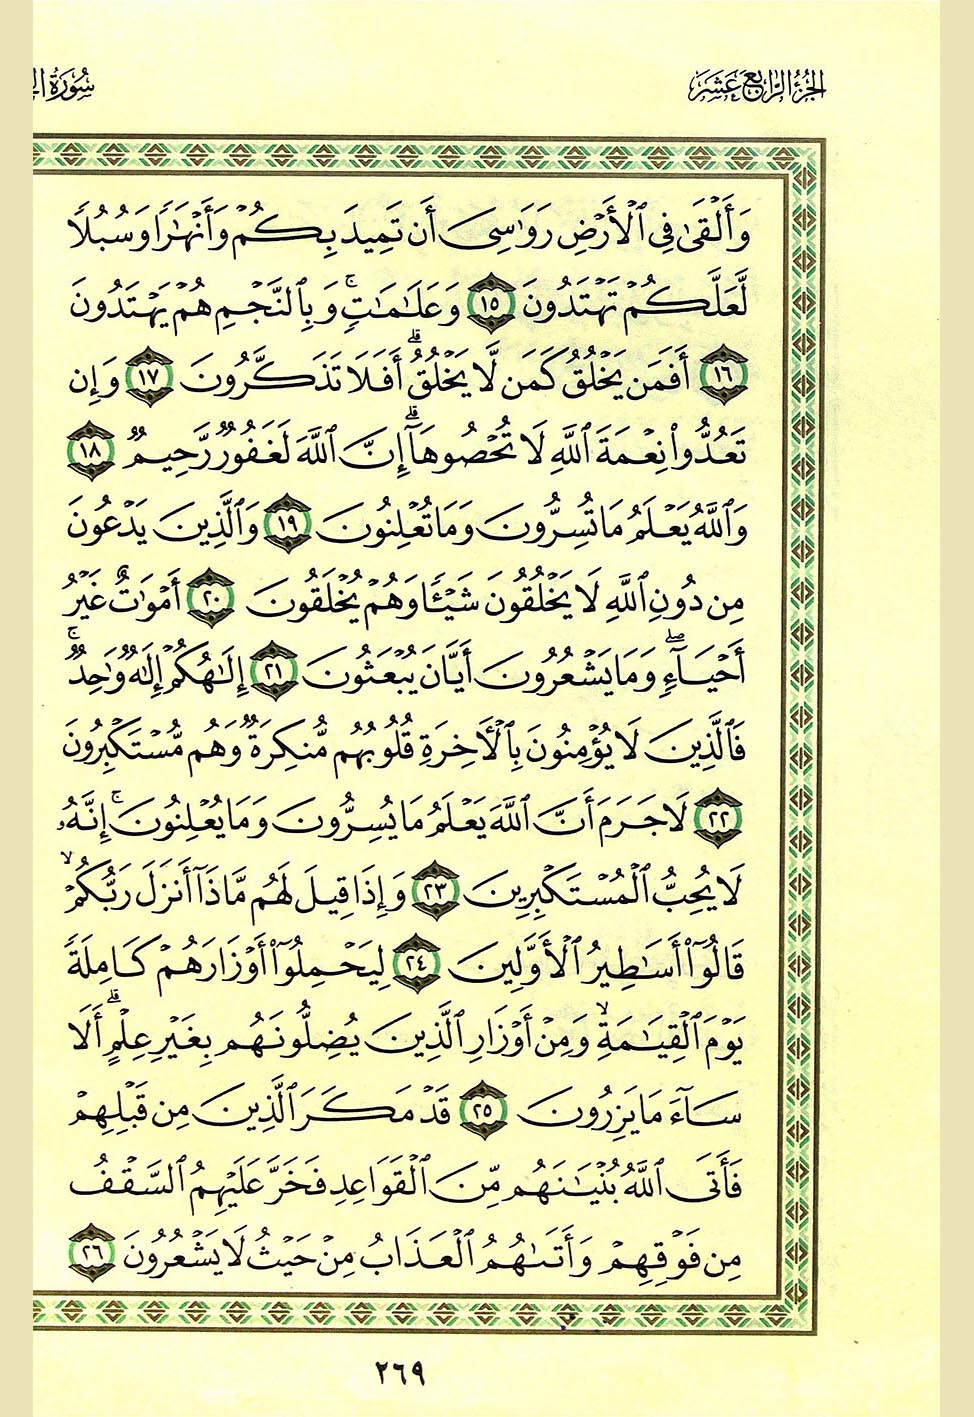 الجزء الرابع عشر
سورة
وَأَلْقَىٰ فِي ٱلْأَرْضِ رَوَٰسِيَ أَن تَمِيدَ بِكُمْ وَأَنْهَٰرًا وَسُبُلًا
لَّعَلَّكُمْ تَهْتَدُونَ ١٥ وَعَلَٰمَٰتٍ ۚ وَبِٱلنَّجْمِ هُمْ يَهْتَدُونَ
١٦ أَفَمَن يَخْلُقُ كَمَن لَّا يَخْلُقُ ۗ أَفَلَا تَذَكَّرُونَ ١٧ وَإِن
تَعُدُّوا۟ نِعْمَةَ ٱللَّهِ لَا تُحْصُوهَآ ۗ إِنَّ ٱللَّهَ لَغَفُورٌ رَّحِيمٌ ١٨
وَٱللَّهُ يَعْلَمُ مَا تُسِرُّونَ وَمَا تُعْلِنُونَ ١٩ وَٱلَّذِينَ يَدْعُونَ
مِن دُونِ ٱللَّهِ لَا يَخْلُقُونَ شَيْـًٔا وَهُمْ يُخْلَقُونَ ٢٠ أَمْوَٰتٌ غَيْرُ
أَحْيَآءٍ ۖ وَمَا يَشْعُرُونَ أَيَّانَ يُبْعَثُونَ ٢١ إِلَٰهُكُمْ إِلَٰهٌ وَٰحِدٌ ۚ
فَٱلَّذِينَ لَا يُؤْمِنُونَ بِٱلْـَٔاخِرَةِ قُلُوبُهُم مُّنكِرَةٌ وَهُم مُّسْتَكْبِرُونَ
٢٢ لَا جَرَمَ أَنَّ ٱللَّهَ يَعْلَمُ مَا يُسِرُّونَ وَمَا يُعْلِنُونَ ۚ إِنَّهُۥ
لَا يُحِبُّ ٱلْمُسْتَكْبِرِينَ ٢٣ وَإِذَا قِيلَ لَهُم مَّاذَآ أَنزَلَ رَبُّكُمْ ۙ
قَالُوٓا۟ أَسَٰطِيرُ ٱلْأَوَّلِينَ ٢٤ لِيَحْمِلُوٓا۟ أَوْزَارَهُمْ كَامِلَةً
يَوْمَ ٱلْقِيَٰمَةِ ۙ وَمِنْ أَوْزَارِ ٱلَّذِينَ يُضِلُّونَهُم بِغَيْرِ عِلْمٍ ۗ أَلَا
سَآءَ مَا يَزِرُونَ ٢٥ قَدْ مَكَرَ ٱلَّذِينَ مِن قَبْلِهِمْ
فَأَتَى ٱللَّهُ بُنْيَٰنَهُم مِّنَ ٱلْقَوَاعِدِ فَخَرَّ عَلَيْهِمُ ٱلسَّقْفُ
مِن فَوْقِهِمْ وَأَتَىٰهُمُ ٱلْعَذَابُ مِنْ حَيْثُ لَا يَشْعُرُونَ ٢٦
٢٦٩